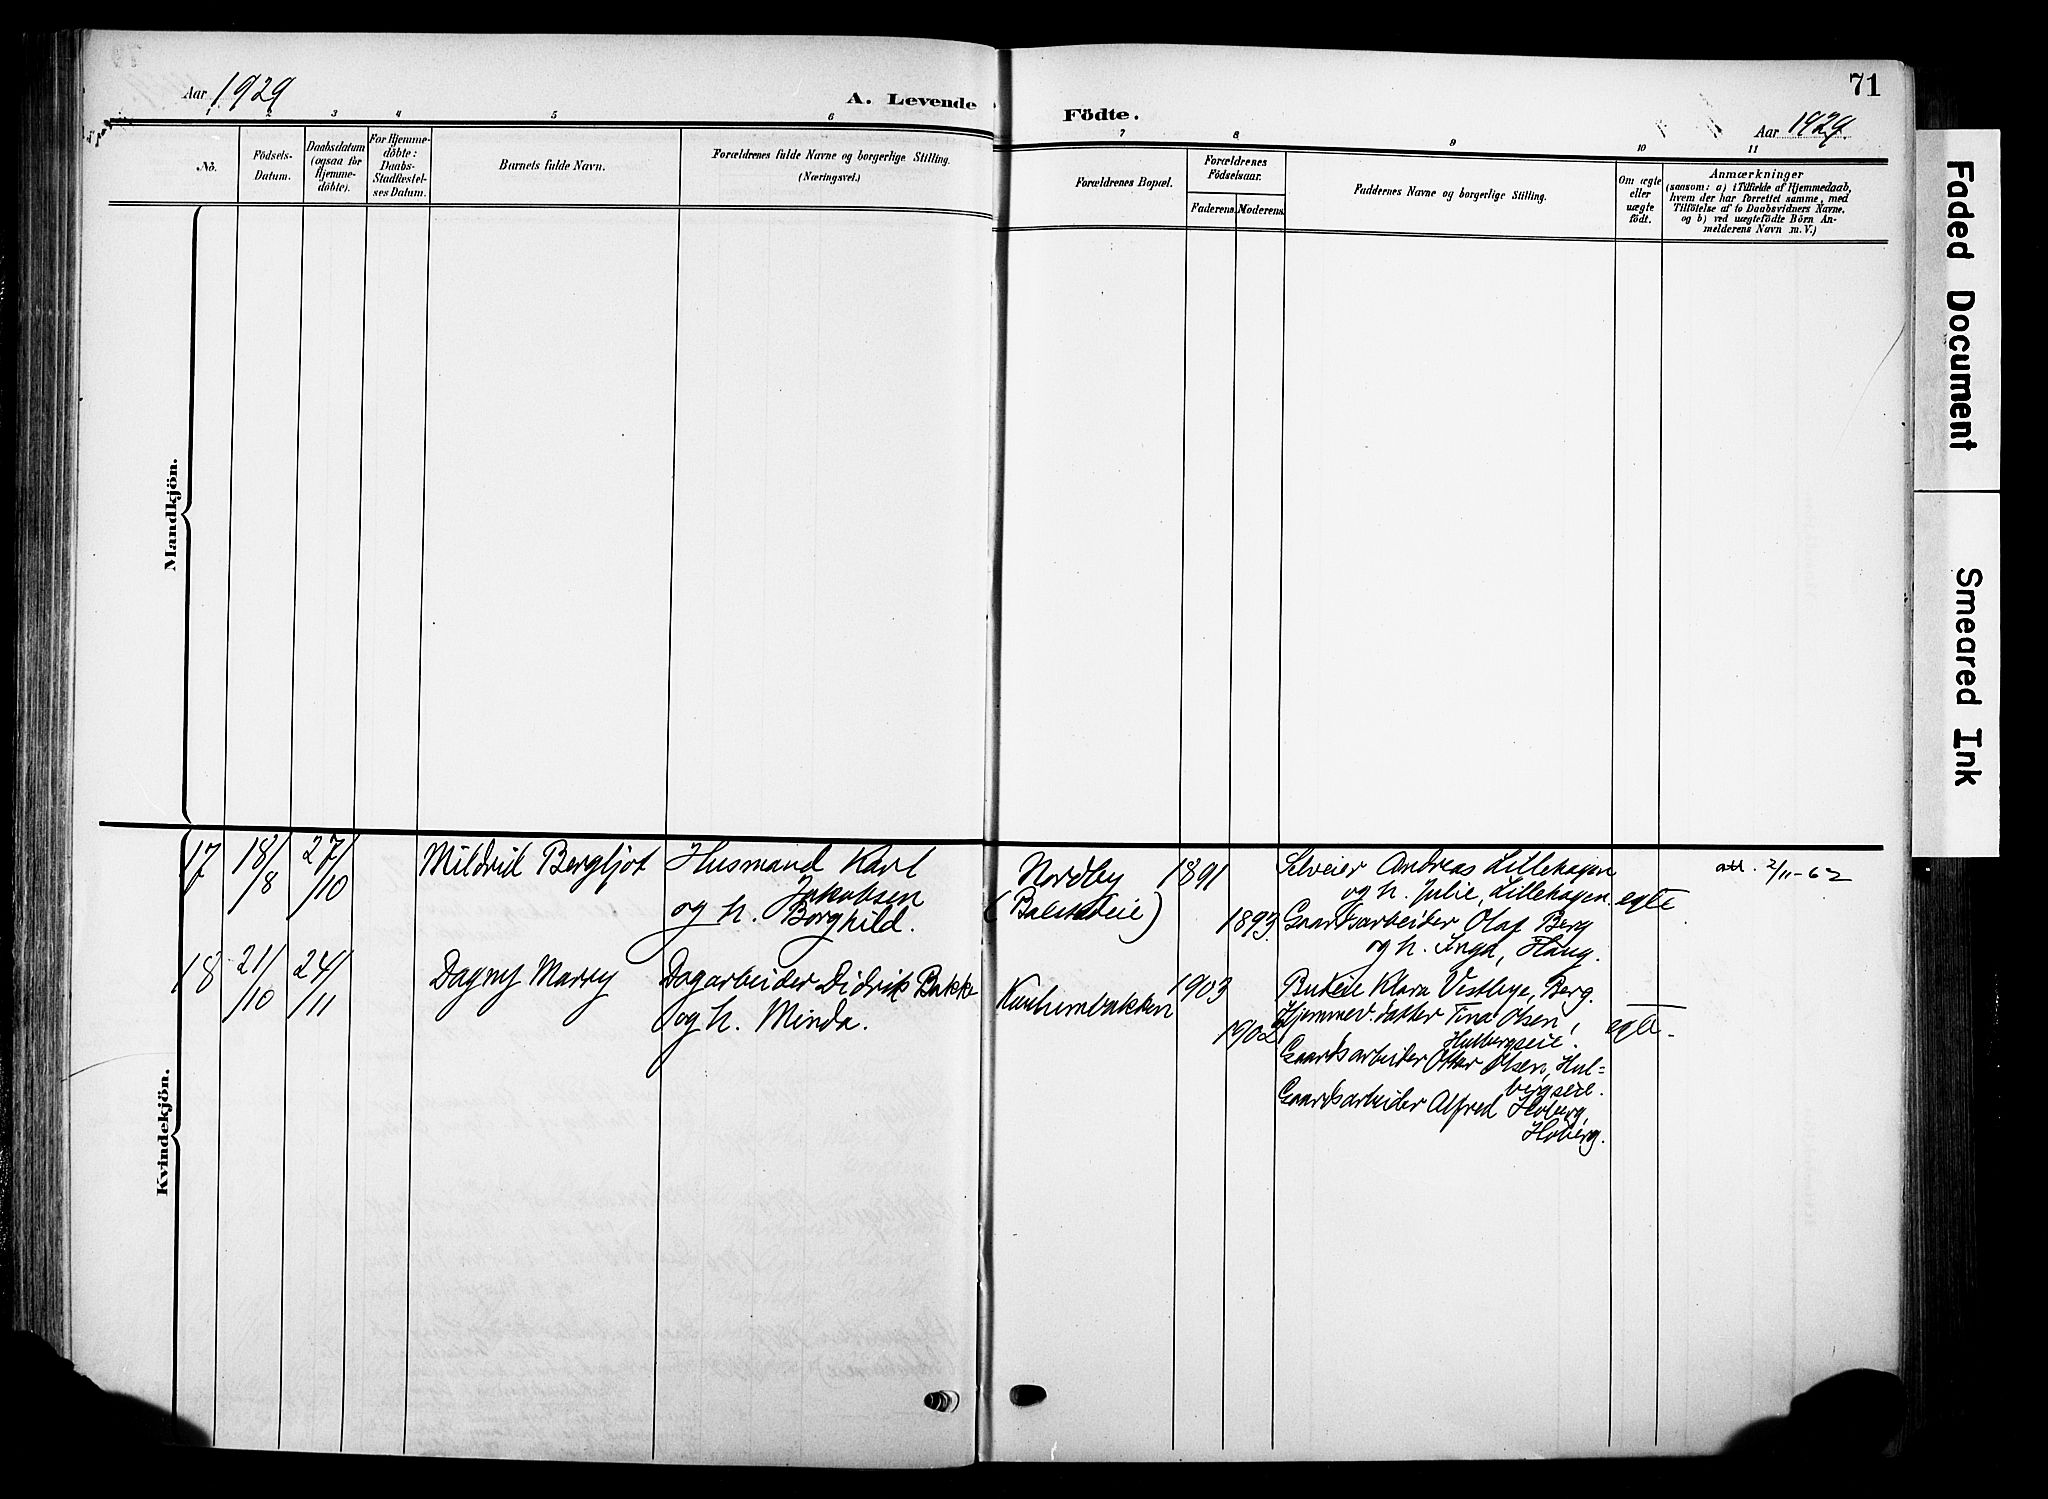 Aar 1929
A. Levende
Födte.
71
Aar 1929.
1 2 3 4 5 6 7 8 9 10 11
No.
Födsels-
Datum.
Daabsdatum
(ogsaa for
Hjemme-
döbte).
For Hjemme-
döbte:
Daabs-
Stadfæstel-
ses Datum.
Barnets fulde Navn.
Forældrenes fulde Navne og borgerlige Stilling.
(Næringsvei.)
Forældrenes Bopæl.
Forældrenes
Födselsaar.
Faderens. Moderens.
Faddernes Navne og borgerlige Stilling.
Om ægte
eller
uægte
födt.
Anmærkninger
(saasom: a) i Tilfælde af Hjemmedaab,
hvem der har forrettet samme, med
Tilföielse af to Daabsvidners Navne.
og b) ved uægtefödte Börn An-
melderens Navn m. V.)
Mandkjön.
Kvindekjön.
17 18/8 27/10 Mildrid Bergljot Husmand Karl
Jakobsen
og h. Borghild.
Nordby
1891
1893.
Selveier Andreas Lillehagen
og h. Julie, Lillehagen.
Gaardsarbeider Olaf Berg
og h. Inga, Haug.
egte.
att. 2/11-62
18 21/10 24/11 Dagny Marry Dagarbeider Didrik Bakke
og h. Minda.
1903
1902
Klara Vestbye, Berg.
Hjemmev. datter Tina Olsen,
Hulbergseie.
Gaardsarbeider Ottar Olsen, Hul-
bergseie.
Gaardsarbeider Alfred Hoberg,
Hoberg.
egte.
Faded Document
Smeared Ink